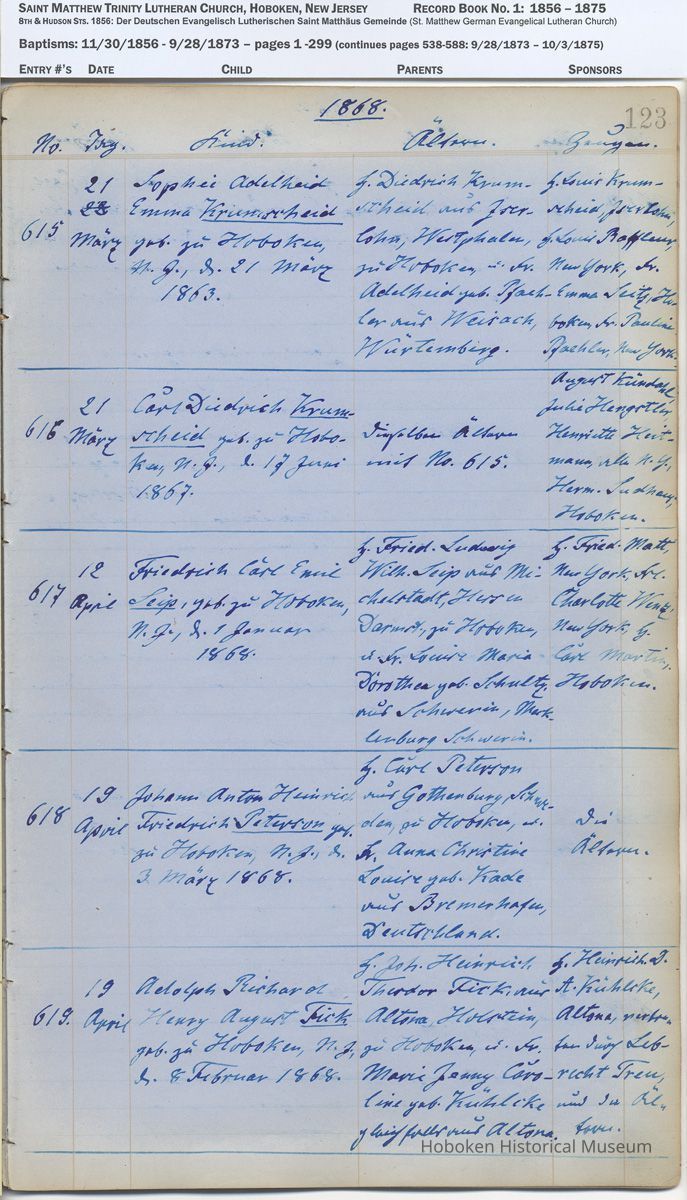 SAINT MATTHEW TRINITY LUTHERAN CHURCH, HOBOKEN, NEW JERSEY RECORD BOOK NO. 1: 1856 – 1875
8TH & HUDSON STS. 1856: Der Deutschen Evangelisch Lutherischen Saint Matthäus Gemeinde (St. Matthew German Evangelical Lutheran Church)
Baptisms: 11/30/1856 - 9/28/1873 – pages 1 -299 (continues pages 538-588: 9/28/1873 – 10/3/1875)
ENTRY #'S DATE CHILD PARENTS SPONSORS
1868.
123
No. Tag. Kind. Ältern. Zeugen.
615
21
März
Sophie Adelheid
Emma Krumscheid
geb. zu Hoboken,
N. J., d. 21 März
1863.
H. Diedrich Krum-
scheid aus Iser-
lohn, Westphalen,
zu Hoboken, u. Fr.
Adelheid geb. Pfaeh-
ler aus Weisach,
Würtemberg.
H. Louis Krum-
scheid, Iserlohn,
H. Louis
New York, Fr.
Emma Seitz, Ho-
boken, Fr. Pauline
Pfaehler, New York.
616
21
März
Carl Diedrich Krum-
scheid geb. zu Hobo-
ken, N. J., d. 17 Juni
1867.
Dieselben Ältern
mit No. 615.
August
Julie Hengstler
Henriette Heit-
mann, alle N. Y.,
Herm.
Hoboken.
617
12
April
Friedrich Carl Emil
Seip, geb. zu Hoboken,
N. J., d. 1 Januar
1868.
H. Fried. Ludwig
Wilh. Seip aus Mi-
chelstadt, Hessen
Darmst., zu Hoboken,
u. Fr. Louise Maria
Dorothea geb. Schultz,
aus Schwerin, Meck-
lenburg Schwerin.
H. Fried. Matt,
New York, Frl.
Charlotte Wenz,
New York, H.
Carl Martin,
Hoboken.
618
19
April
Johann Anton Heinrich
Friedrich Peterson geb.
zu Hoboken, N. J., d.
3 März 1868.
H. Carl Peterson
aus Gothenburg, Schwe-
den, zu Hoboken, u.
Fr. Anna Christine
Louise geb. Kade
aus Bremerhafen,
Deutschland.
Die
Ältern.
619.
19
April
Adolph Richard
Henry August Fick
geb. zu Hoboken, N. J.
d. 8 Februar 1868.
H. Joh. Heinrich
Theodor Fick, aus
Altona, Holstein,
zu Hoboken, u. Fr.
Marie Jenny Caro-
line geb. Kühlcke
gleichfalls aus Altona.
H. Heinrich D.
A. Kühlcke,
Altona, vertre-
ten durch Leb-
recht Treu,
und die Äl-
tern.
Hoboken Historical Museum